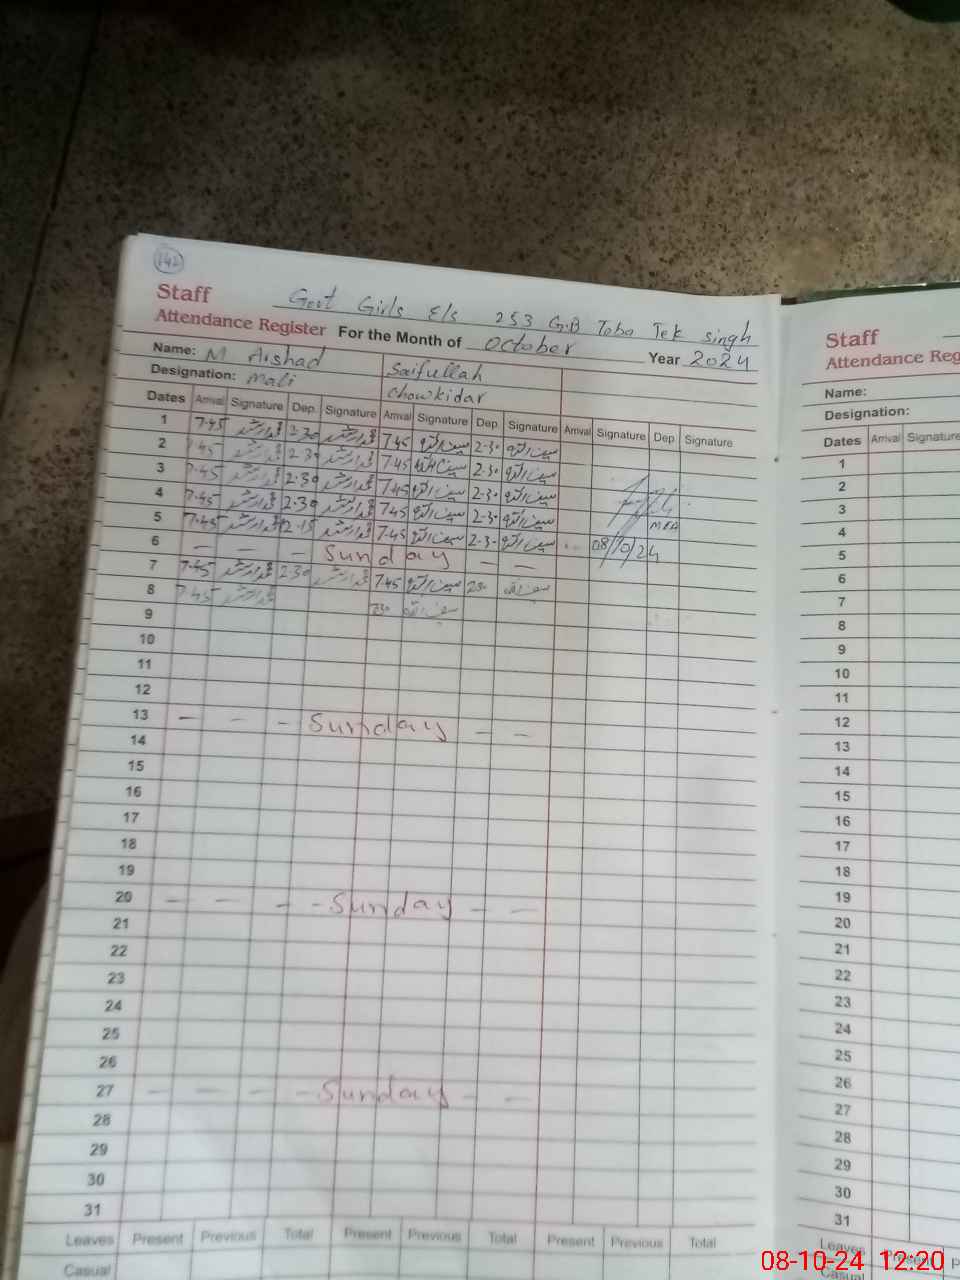 142
Staff Govt Girls E/s 253 G.B Toba Tek Singh
Attendance Register For the Month of October Year 2024
Name: M Arshad Saifullah
Designation: Mali Chowkidar
Dates Arrival Signature Dep. Signature Arrival Signature Dep. Signature Arrival Signature Dep. Signature
1 7.45 محمد ارشد 2.30 محمد ارشد 7.45 سیف اللہ 2.30 سیف اللہ
2 7.45 محمد ارشد 2.30 محمد ارشد 7.45 سیف اللہ 2.30 سیف اللہ
3 7.45 محمد ارشد 2.30 محمد ارشد 7.45 سیف اللہ 2.30 سیف اللہ
4 7.45 محمد ارشد 2.30 محمد ارشد 7.45 سیف اللہ 2.30 سیف اللہ
MEA
5 7.45 محمد ارشد 12.15 محمد ارشد 7.45 سیف اللہ 2.30 سیف اللہ 08/10/24
6 – – – Sunday – –
7 7.45 محمد ارشد 2.30 محمد ارشد 7.45 سیف اللہ 2.30 سیف اللہ
8 7.45 محمد ارشد 7.30 سیف اللہ
9
10
11
12
13 – – – Sunday – –
14
15
16
17
18
19
20 – – – – Sunday – –
21
22
23
24
25
26
27 – – – – Sunday – –
28
29
30
31
Leaves Present Previous Total Present Previous Total Present Previous Total
Casual
Staff
Attendance Reg
Name:
Designation:
Dates Arrival Signature
1
2
3
4
5
6
7
8
9
10
11
12
13
14
15
16
17
18
19
20
21
22
23
24
25
26
27
28
29
30
31
Leaves Present P
Casual
08-10-24 12:20